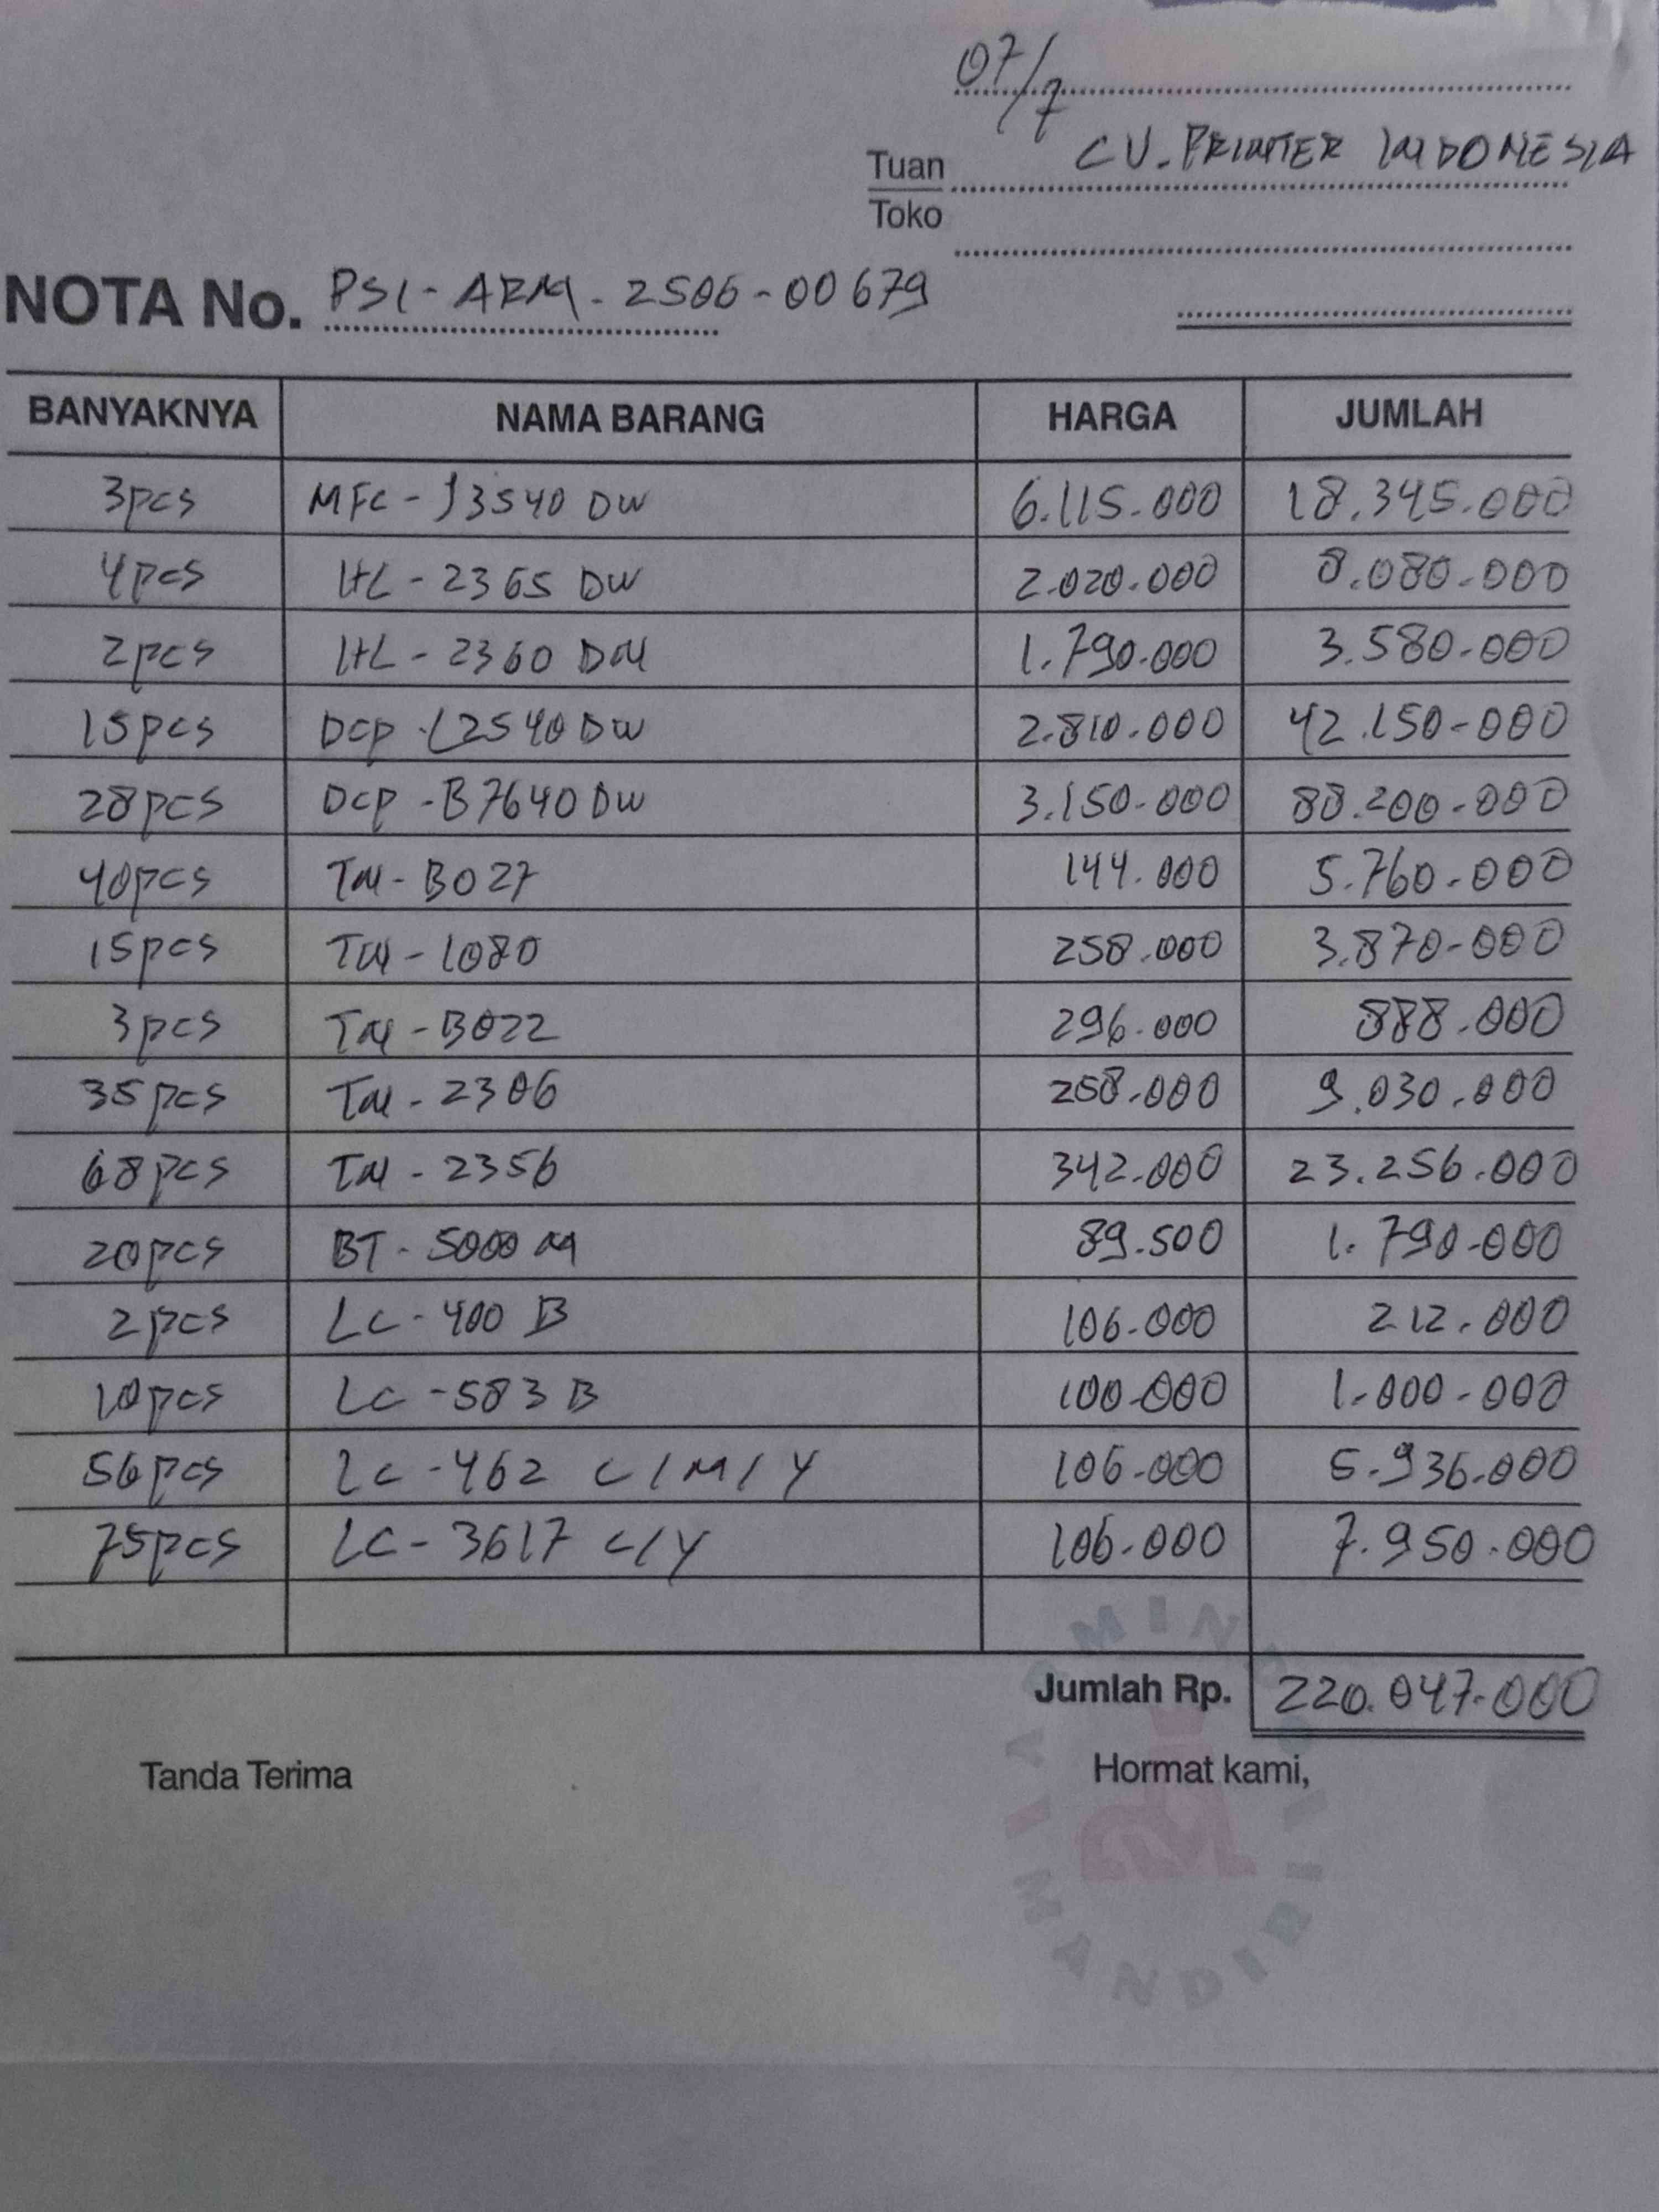 07/7
Tuan CV. PRINTER INDONESIA
Toko
NOTA No. PSI-ARM-2506-00679
BANYAKNYA NAMA BARANG HARGA JUMLAH
3pcs MFC-J3540 DW 6.115.000 18.345.000
4pcs HL-2365 DW 2.020.000 8.080.000
2pcs HL-2360 DN 1.790.000 3.580.000
15pcs DCP-L2540 DW 2.810.000 42.150.000
28pcs DCP-B7640 DW 3.150.000 88.200.000
40pcs TN-B027 144.000 5.760.000
15pcs TN-1080 258.000 3.870.000
3pcs TN-B022 296.000 888.000
35pcs TN-2306 258.000 9.030.000
68pcs TN-2356 342.000 23.256.000
20pcs BT-5000 M 89.500 1.790.000
2pcs LC-400 B 106.000 212.000
10pcs LC-583 B 100.000 1.000.000
56pcs LC-462 C/M/Y 106.000 5.936.000
75pcs LC-3617 C/Y 106.000 7.950.000
Jumlah Rp. 220.047.000
Tanda Terima Hormat kami,
MANDIRI